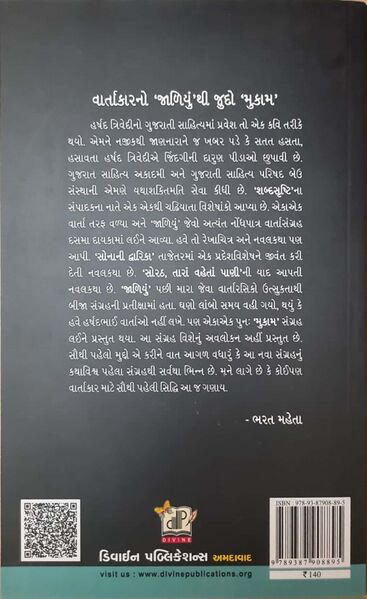 વાર્તાકારનો 'જાળિયું'થી જુદો 'મુકામ'
હર્ષદ ત્રિવેદીનો ગુજરાતી સાહિત્યમાં પ્રવેશ તો એક કવિ તરીકે
થયો. એમને નજીકથી જાણનારાને જ ખબર પડે કે સતત હસતા,
હસાવતા હર્ષદ ત્રિવેદીએ જિંદગીની દારુણ પીડાઓ છુપાવી છે.
ગુજરાત સાહિત્ય અકાદમી અને ગુજરાતી સાહિત્ય પરિષદ બેઉ
સંસ્થાની એમણે યથાશક્તિમતિ સેવા કીધી છે. 'શબ્દસૃષ્ટિ'ના
સંપાદકના નાતે એક એકથી ચઢિયાતા વિશેષાંકો આપ્યા છે. એકાએક
વાર્તા તરફ વળ્યા અને 'જાળિયું' જેવો અત્યંત નોંધપાત્ર વાર્તાસંગ્રહ
દસમા દાયકામાં લઈને આવ્યા. હવે તો રેખાચિત્ર અને નવલકથા પણ
આપી. 'સોનાની દ્વારિકા' તાજેતરમાં એક પ્રદેશવિશેષને જીવંત કરી
દેતી નવલકથા છે. 'સોરઠ, તારાં વહેતાં પાણી'ની યાદ આપતી
નવલકથા છે. 'જાળિયું' પછી મારા જેવા વાર્તારસિકો ઉત્સુકતાથી
બીજા સંગ્રહની પ્રતીક્ષામાં હતા. ઘણો લાંબો સમય વહી ગયો, થયું કે
હવે હર્ષદભાઈ વાર્તાઓ નહીં લખે. પણ એકાએક પુનઃ 'મુકામ' સંગ્રહ
લઈને પ્રસ્તુત થયા. આ સંગ્રહ વિશેનું અવલોકન અહીં પ્રસ્તુત છે.
સૌથી પહેલો મુદ્દો એ કરીને વાત આગળ વધારું કે આ નવા સંગ્રહનું
કથાવિશ્વ પહેલા સંગ્રહથી સર્વથા ભિન્ન છે. મને લાગે છે કે કોઈપણ
વાર્તાકાર માટે સૌથી પહેલી સિદ્ધિ આ જ ગણાય.
- ભરત મહેતા
ISBN : 978-93-87908-89-5
9789387908895
₹ 140
DIVINE
ડિવાઇન પબ્લિકેશન્સ અમદાવાદ
visit us : www.divinepublications.org